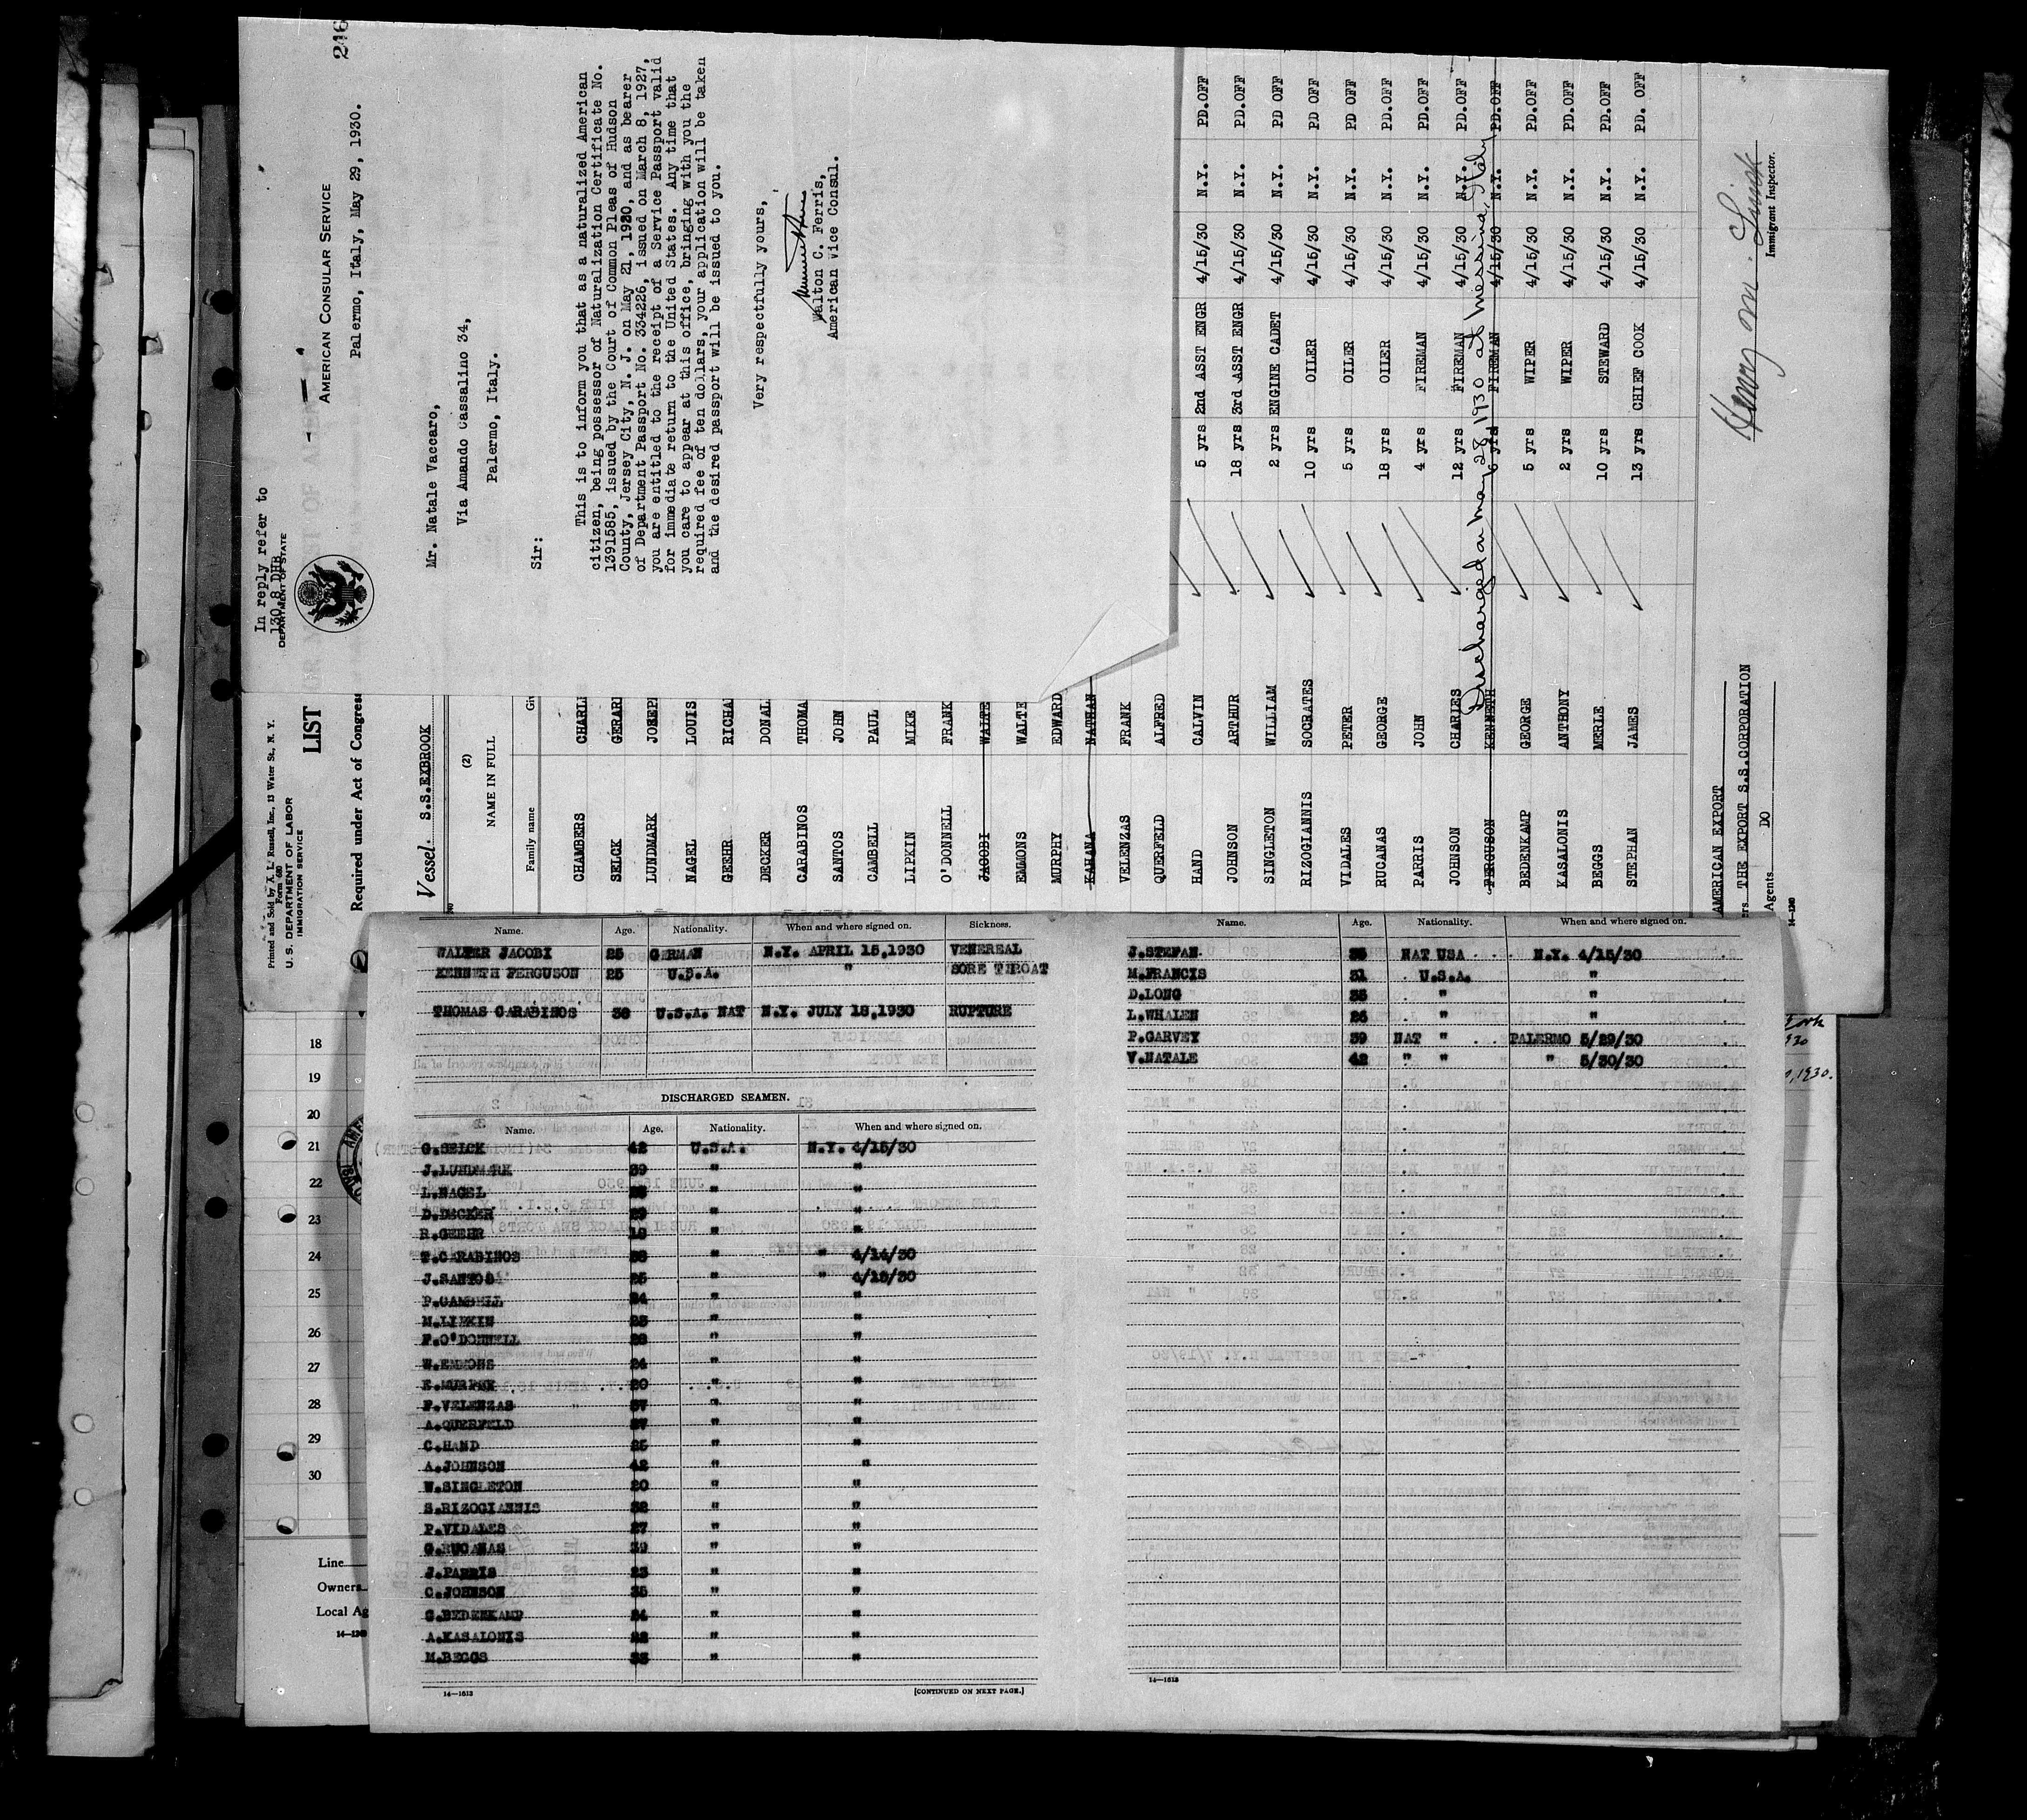 246
In reply refer to
130.8 DHB
DEPARTMENT OF STATE
AMERICAN CONSULAR SERVICE
Palermo, Italy, May 29, 1930.
Mr. Natale Vaccaro,
Via Amando Cassalino 34,
Palermo, Italy.
Sir:
This is to inform you that as a naturalized American
citizen, being possessor of Naturalization Certificate No.
1391585, issued by the Court of Common Pleas of Hudson
County, Jersey City, N. J. on May 21, 1920, and as bearer
of Department Passport No. 334226, issued on March 8, 1927,
you are entitled to the receipt of a Service Passport valid
for immediate return to the United States. Any time that
you care to appear at this office, bringing with you the
required fee of ten dollars, your application will be taken
and the desired passport will be issued to you.
Very respectfully yours,
Walton C. Ferris,
American Vice Consul.
Printed and Sold by A. L. Russell, Inc., 13 Water St., N. Y.
Form 680
U. S. DEPARTMENT OF LABOR
IMMIGRATION SERVICE
LIST
Required under Act of Congress
Vessel S.S.EXBROOK
(2)
NAME IN FULL
Family name Gi
CHAMBERS CHARL
SELCK GERAR
LUNDMARK JOSEP
NAGEL LOUIS
GEEHR RICHA
DECKER DONAL
CARABINOS THOMA
SANTOS JOHN
CAMBELL PAUL
LIPKIN MIKE
O'DONNELL FRANK
JACOBI WALTE
EMMONS WALTE
MURPHY EDWARD
KAHANA NATHAN
VELENZAS FRANK
QUERFELD ALFRED
HAND CALVIN 5 yrs 2nd ASST ENGR 4/15/30 N.Y. PD.OFF
JOHNSON ARTHUR 18 yrs 3rd ASST ENGR 4/15/30 N.Y. PD.OFF
SINGLETON WILLIAM 2 yrs ENGINE CADET 4/15/30 N.Y. PD OFF
RIZOGIANNIS SOCRATES 10 yrs OILER 4/15/30 N.Y. PD OFF
VIDALES PETER 5 yrs OILER 4/15/30 N.Y. PD OFF
RUCANAS GEORGE 18 yrs OILER 4/15/30 N.Y. PD.OFF
PARRIS JOHN 4 yrs FIREMAN 4/15/30 N.Y. PD.OFF
JOHNSON CHARLES 12 yrs FIREMAN 4/15/30 N.Y. PD.OFF
Discharged on May 28 1930 at Messina, Italy
FERGUSON KENNETH 6 yrs FIREMAN 4/15/30 N.Y. PD.OFF
BEDENKAMP GEORGE 5 yrs WIPER 4/15/30 N.Y. PD.OFF
KASALONIS ANTHONY 2 yrs WIPER 4/15/30 N.Y. PD.OFF
BEGGS MERLE 10 yrs STEWARD 4/15/30 N.Y. PD.OFF
STEPHAN JAMES 13 yrs CHIEF COOK 4/15/30 N.Y. PD. OFF
AMERICAN EXPORT
rs THE EXPORT S.S.CORPORATION
Agents DO
14—1240
Henry M.
Immigrant Inspector.
18
19
20
21
22
23
24
25
26
27
28
29
30
Line
Owners
Local Ag
14—1240
Name. Age. Nationality. When and where signed on. Sickness.
WALTER JACOBI 25 GERMAN N.Y. APRIL 15,1930 VENEREAL
KENNETH FERGUSON 25 U.S.A. " SORE THROAT
THOMAS CARABINOS 38 U.S.A. NAT N.Y. JULY 18,1930 RUPTURE
DISCHARGED SEAMEN.
Name. Age. Nationality. When and where signed on.
G.SELCK 42 U.S.A. N.Y. 4/15/30
J.LUNDMARK 39 " "
L.NAGEL " "
D.DECKER 29 " "
R.GEEHR 18 " "
T.CARABINOS 38 " " 4/14/30
J.SANTOS 25 " " 4/15/30
P.CAMBELL 24 " "
M.LIPKIN 25 " "
F.O'DONNELL 28 " "
W.EMMONS 24 " "
E.MURPHY 20 " "
F.VELENZAS 37 " "
A.QUERFELD 27 " "
C.HAND 25 " "
A.JOHNSON 42 " "
W.SINGLETON 20 " "
S.RIZOGIANNIS 32 " "
P.VIDALES 27 " "
G.RUCANAS 39 " "
J.PARRIS 23 " "
C.JOHNSON 35 " "
G.BEDENKAMP 24 " "
A.KASALONIS 22 " "
M.BEGGS 33 " "
14—1613
[CONTINUED ON NEXT PAGE.]
Name. Age. Nationality. When and where signed on.
J.STEFAN 35 NAT USA N.Y. 4/15/30
M.FRANCIS 31 U.S.A. "
D.LONG 35 " "
L.WHALEN 26 " "
P.GARVEY 39 NAT " PALERMO 5/29/30
V.NATALE 42 " " " 5/30/30
14—1613